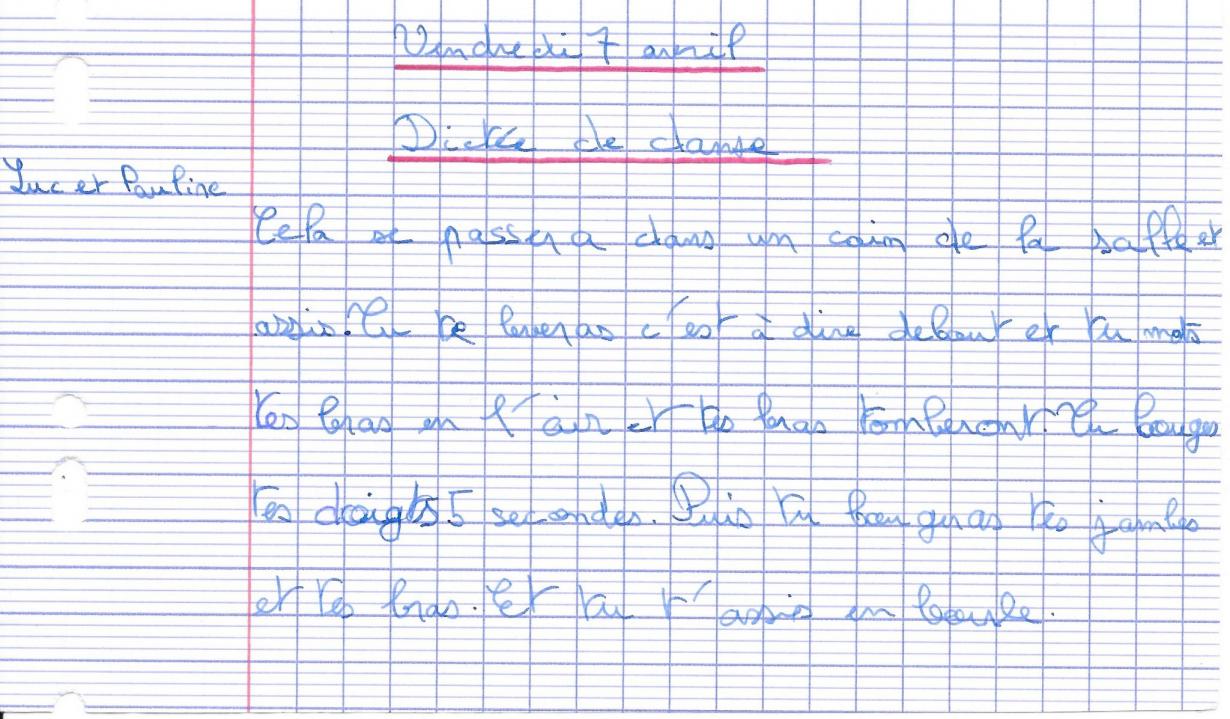 Vendredi 7 avril
Dictée de danse
Luc et Pauline
Cela se passera dans un coin de la salle et
assis. Tu te leveras c'est à dire debout et tu mets
tes bras en l'air et tes bras tomberont. Tu bouges
tes doigts 5 secondes. Puis tu bougeras tes jambes
et tes bras. Et tu t'assis en boule.